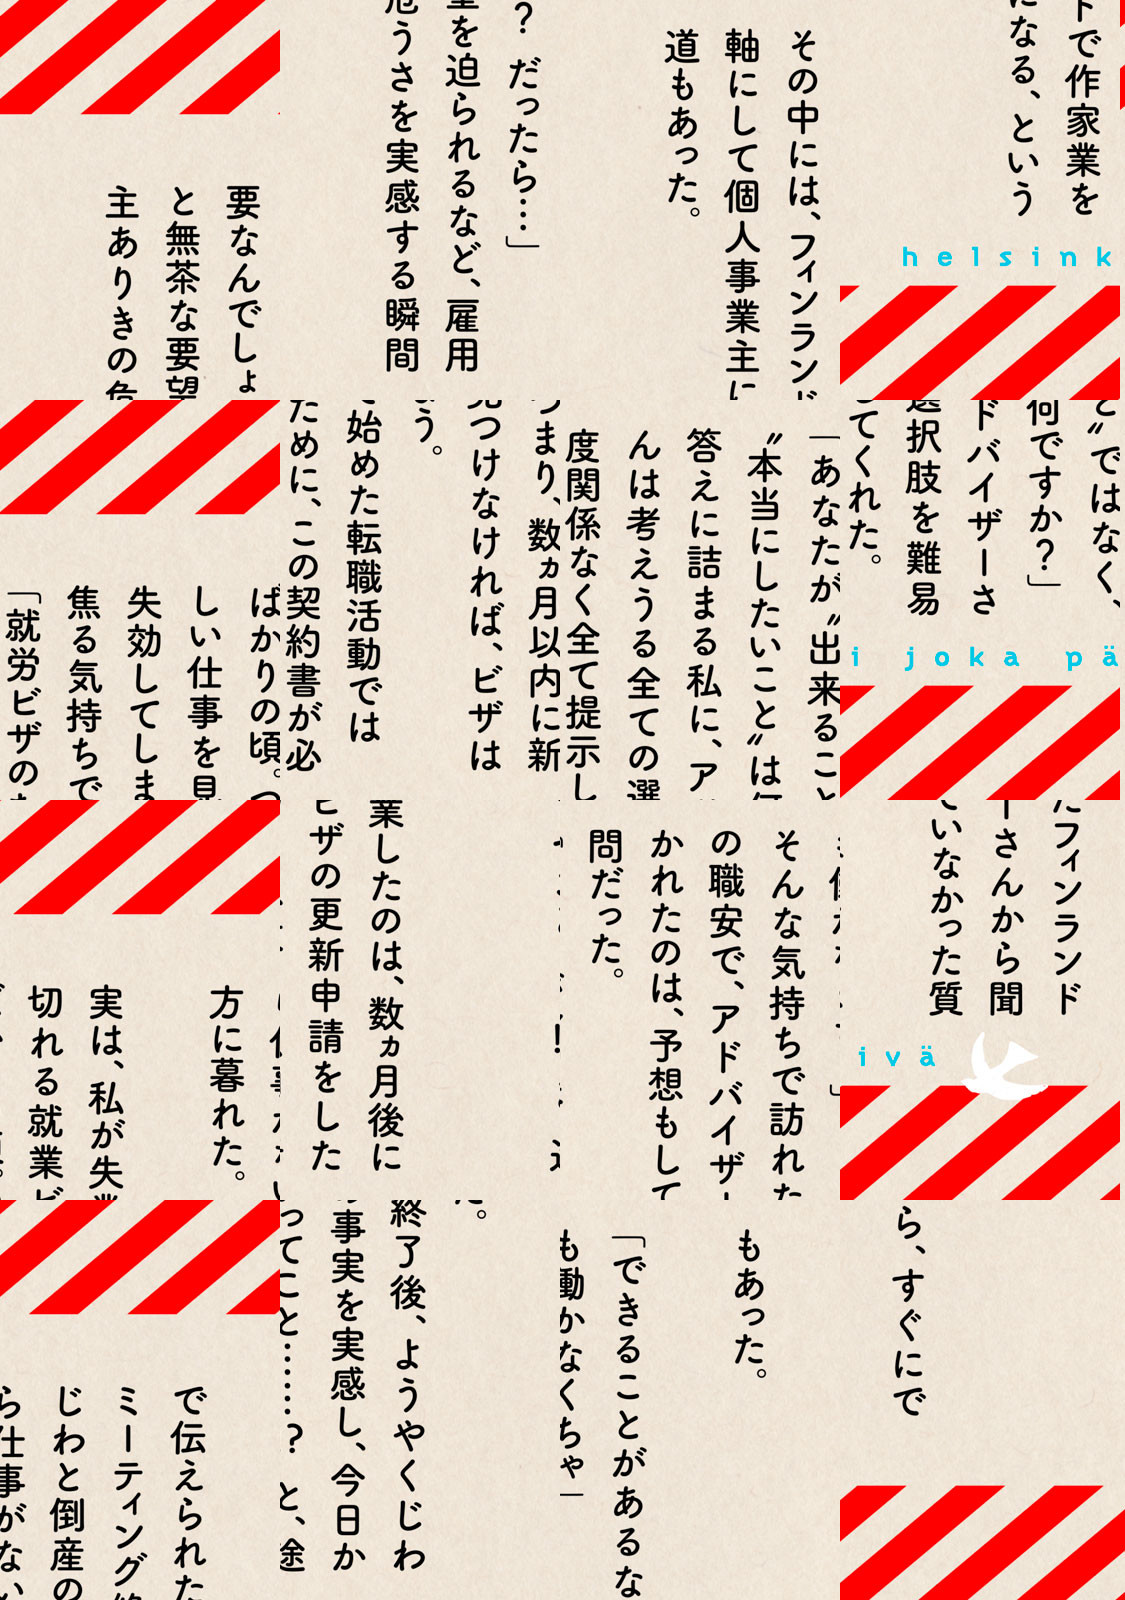 トで作家業を
になる、という
helsink
その中には、フィンランド
軸にして個人事業主に
道もあった。
？ だったら…」
を迫られるなど、雇用
危うさを実感する瞬間
要なんでしょ
と無茶な要望
主ありきの危
と〟ではなく、
何ですか？」
ドバイザーさ
選択肢を難易
てくれた。
i joka pä
「あなたが〝出来ること
〝本当にしたいこと〟は何
答えに詰まる私に、ア
んは考えうる全ての選
度関係なく全て提示し
つまり、数ヵ月以内に新
見つけなければ、ビザは
う。
て始めた転職活動では
ために、この契約書が必
ばかりの頃。つ
しい仕事を見
失効してしま
焦る気持ちで
「就労ビザの
たフィンランド
ーさんから聞
ていなかった質
ivä
そんな気持ちで訪れた
の職安で、アドバイザー
かれたのは、予想もして
問だった。
業したのは、数ヵ月後に
ビザの更新申請をした
方に暮れた。
実は、私が失業
切れる就業ビ
ら、すぐにで
もあった。
「できることがあるな
も働かなくちゃ」
た。
終了後、ようやくじわ
事実を実感し、今日か
ってこと……？ と、途
で伝えられた
ミーティング終
じわと倒産の
ら仕事がない